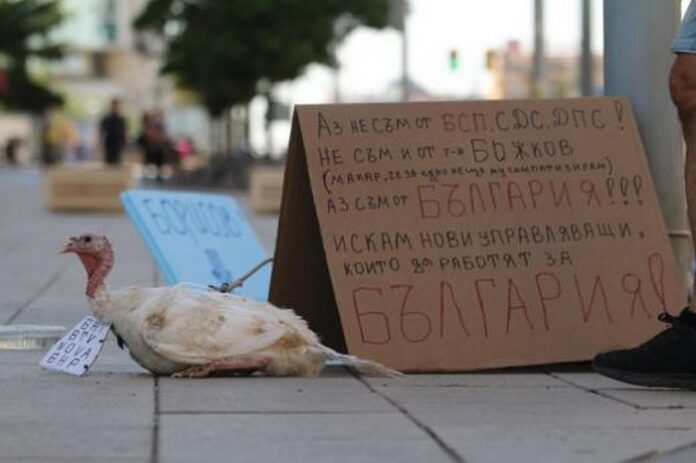 Аз не съм от БСП, СДС, ДПС!
не съм и от г-н БОЖКОВ
(макар, че за едно нещо му симпатизирам)
Аз съм от БЪЛГАРИЯ!!!
искам нови управляващи,
които да работят за
БЪЛГАРИЯ!
БОРИСОВ
БНТ
BTV
NOVA
БНР